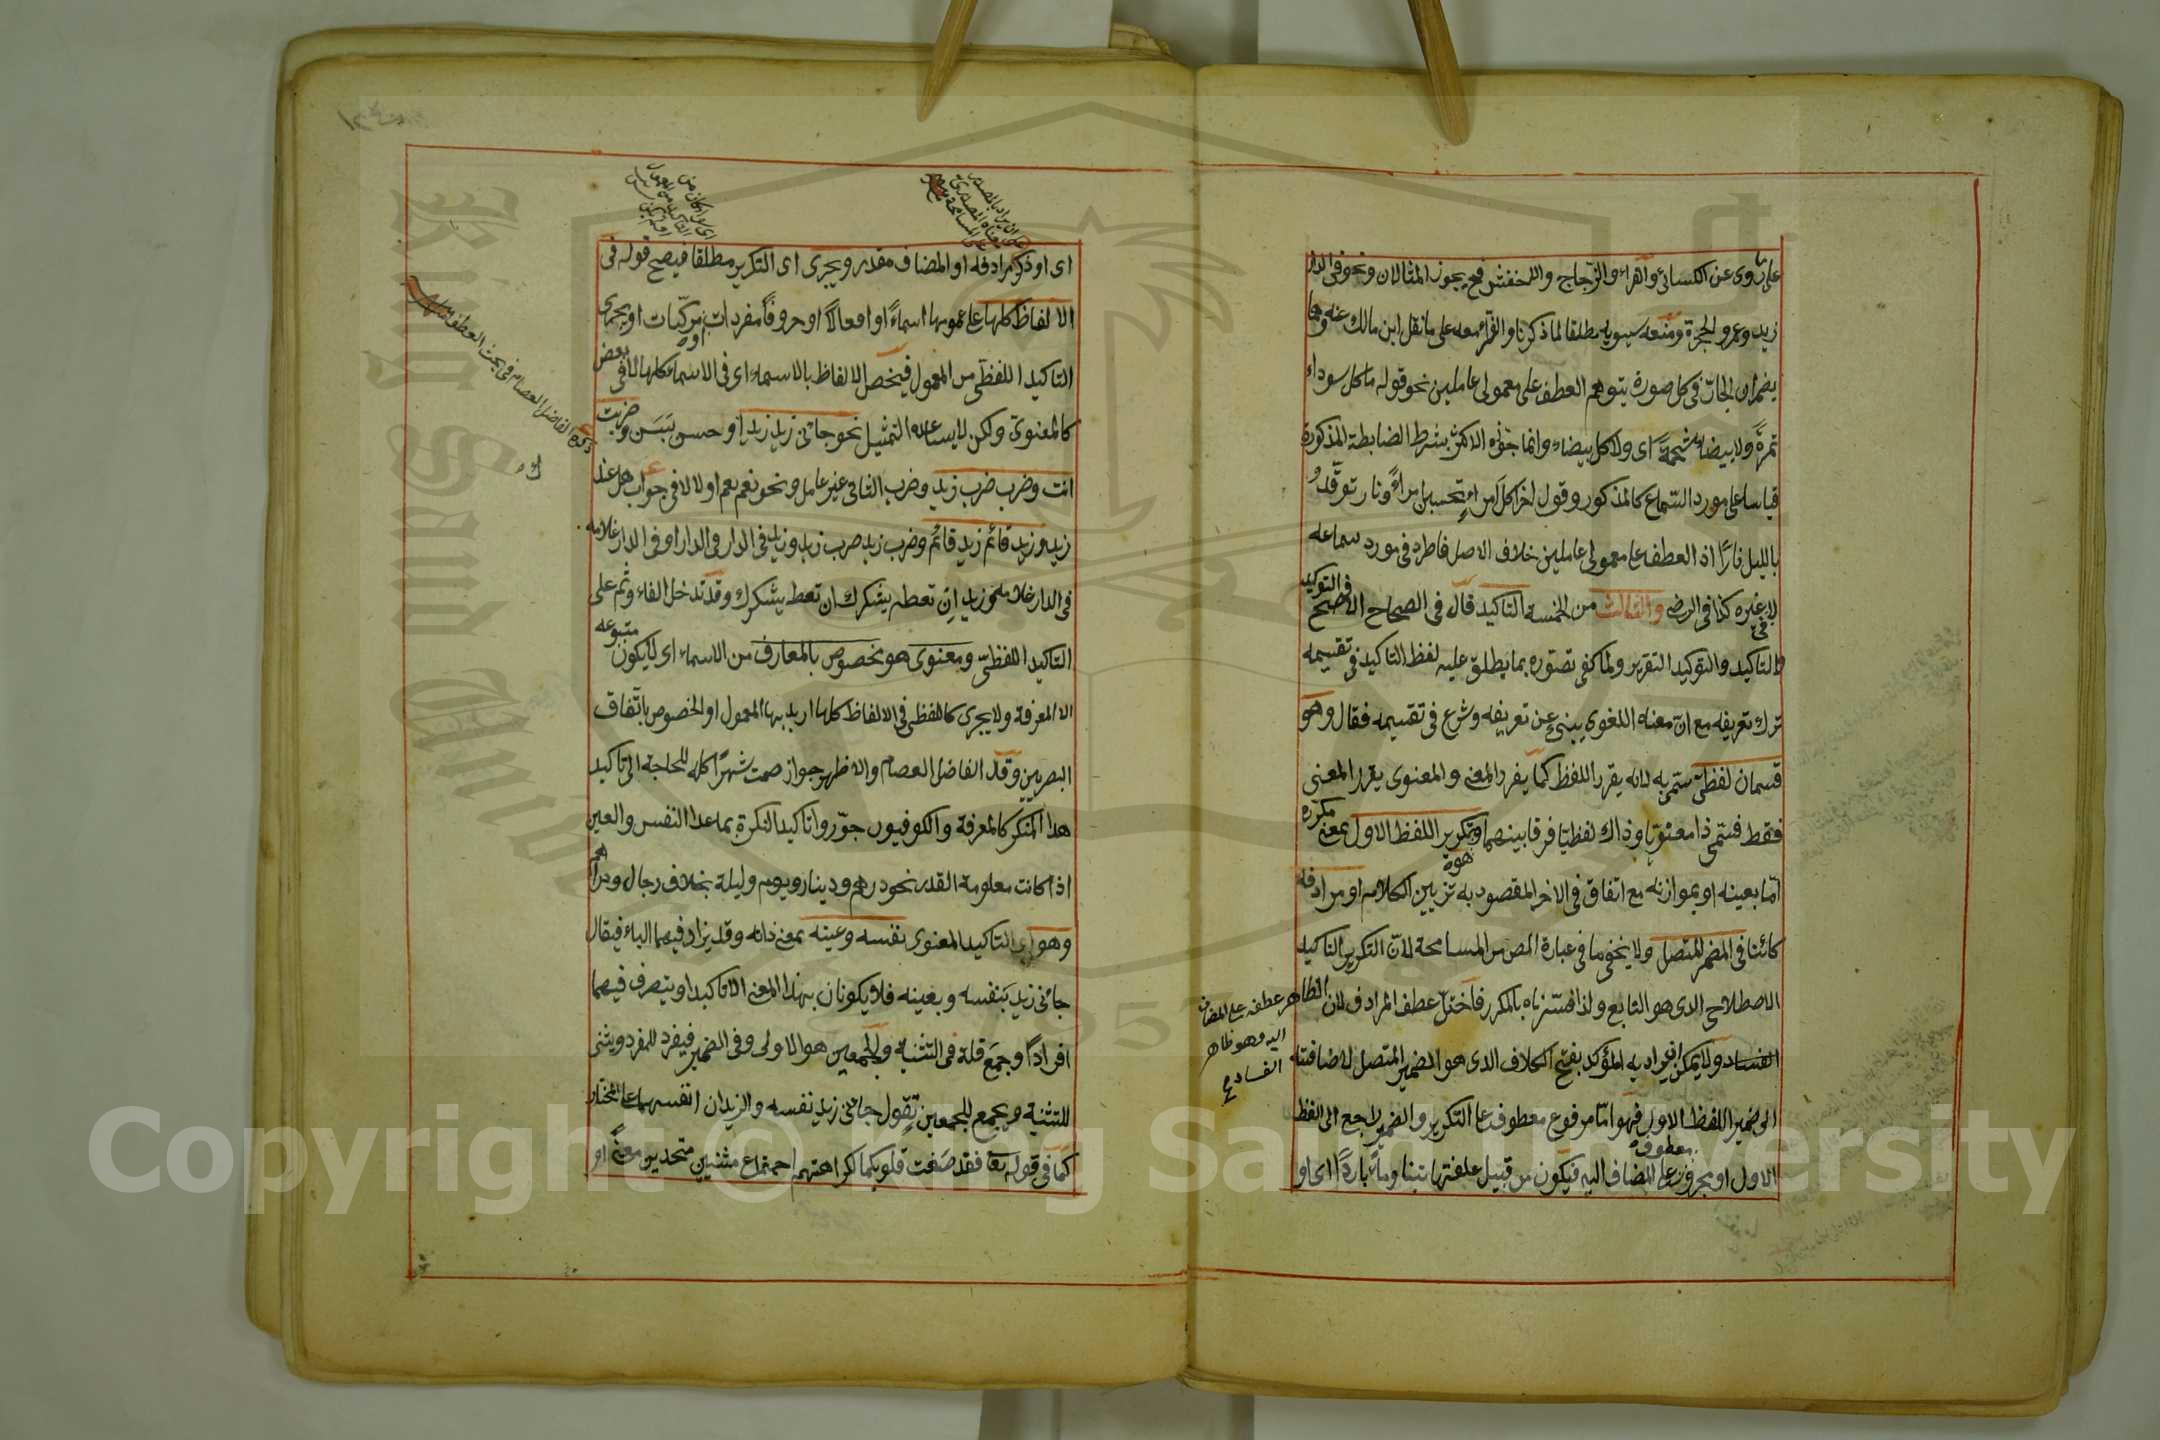 على ما روى عن الكسائى والفراء والزجاج والاخفش فح يجوز المثالان ونحو فى الدار
زيد وعمرو الحجرة ومنعه سيبويه مطلقا لما ذكرنا والفراء معه على ما نقل ابن مالك عنه وهما
يضمران الجار فى كل صورة يتوهم العطف على معمولى عاملين نحو قوله ما كل سوداء
تمرة ولا بيضاء شحمة اى ولا كل بيضاء وانما جوزه الاكثر بشرط الضابطة المذكورة
قياسا على مورد السماع كالمذكور وقول اخر اكل امرء تحسبين امراءً ونار توقد
بالليل نارًا اذ العطف على معمولى عاملين خلاف الاصل فاطرد فى مورد سماعه
لا فى غيره كذا فى الرضى والثالث من الخمسة التاكيد قال فى الصحاح التوكيد الافصح
فى
التاكيد والتوكيد التقرير ولما كفى تصوره بما يطلق عليه لفظ التاكيد فى تقسيمه
ترك تعريفه مع ان معناه اللغوى يبنئ عن تعريفه وشرع فى تقسيمه فقال وهو
قسمان لفظى سمى به لانه يقرر اللفظ كما يقرر المعنى والمعنوى يقرر المعنى
فقط فسمى ذا معنويا وذاك لفظيا فرقا بينهما وهو تكرير اللفظ الاول بمعنى مكرره
اما بعينه او بموازنه مع اتفاق فى الاخر المقصود به تزيين الكلام او مرادفه
كائنا فى المضمر المتصل ولا يخفى ما فى عبارة المص من المسامحة لان التكرير التاكيد
الاصطلاحى الذى هو التابع ولذا فسرناه بالمكرر فاختل عطف المرادف لان الظاهر عطفه على المضاف
اليه وهو ظاهر
الفساد
الفساد ولا يمكن ان يراد به المؤكد بفتح الكاف الذى هو الضمير المتصل لاضافته
الى ضمير اللفظ الاول فهو اما مرفوع معطوف على التكرير والضمير راجع الى لفظ
الاول او مجرور معطوف على المضاف اليه فيكون من قبيل علفتها تبنا وماءً باردًا اى او
اى او ذكر مرادفه او المضاف مقدر ويجرى اى التكرير مطلقا فيصح قوله فى
الالفاظ كلها على عمومها اسماءً او افعالاً او حروفاً مفردات او مركبات او يجرى
التاكيد اللفظى من المعمول فيختص الالفاظ بالاسماء اى فى الاسماء كلها لا فى بعض
كالمعنوى ولكن لا يساعده التمثيل نحو جائنى زيد زيد او حسن بسن وضربت
انت وضرب ضرب زيد وضرب الثانى غير عامل ونحو نعم نعم او لا لا فى جواب هل عندك
زيد وزيد قائم زيد قائم وضرب زيد ضرب زيد وزيد فى الدار فى الدار او فى الدار غلامه
فى الدار غلامه ونحو زيد ان تعطه يشكرك ان تعط يشكرك وقد تدخل الفاء وثم على
التاكيد اللفظى ومعنوى هو مخصوص بالمعارف من الاسماء اى لا يكون متبوعه
الا المعرفة ولا يجرى كاللفظى فى الالفاظ كلها اريد بها المعمول او الخصوص باتفاق
البصريين وقد الفاضل العصام والاظهر جواز صمت شهرًا كله للحاجة الى تاكيد
هذا المنكر كالمعرفة والكوفيون جوزوا تاكيد النكرة بما عدا النفس والعين
اذا كانت معلومة القدر نحو درهم ودينار ويوم وليلة بخلاف رجال ودراهم
وهو اى التاكيد المعنوى نفسه وعينه بمعنى ذاته وقد يزاد فيهما الباء فيقال
جائنى زيد بنفسه وبعينه فلا يكونان بهذا المعنى الا تاكيدا ويتصرف فيهما
افرادًا وجمع قلة فى التثنية والجمعين هو الاولى وفى الضمير فيفرد للمفرد ويثنى
للتثنية ويجمع للجمعين تقول جائنى زيد نفسه والزيدان انفسهما على المختار
كما فى قوله تعا فقد صغت قلوبكما لكراهتهم اجتماع مثنيين متحدين معنىً او
ذكره الفاضل العصام فى بحث العطف